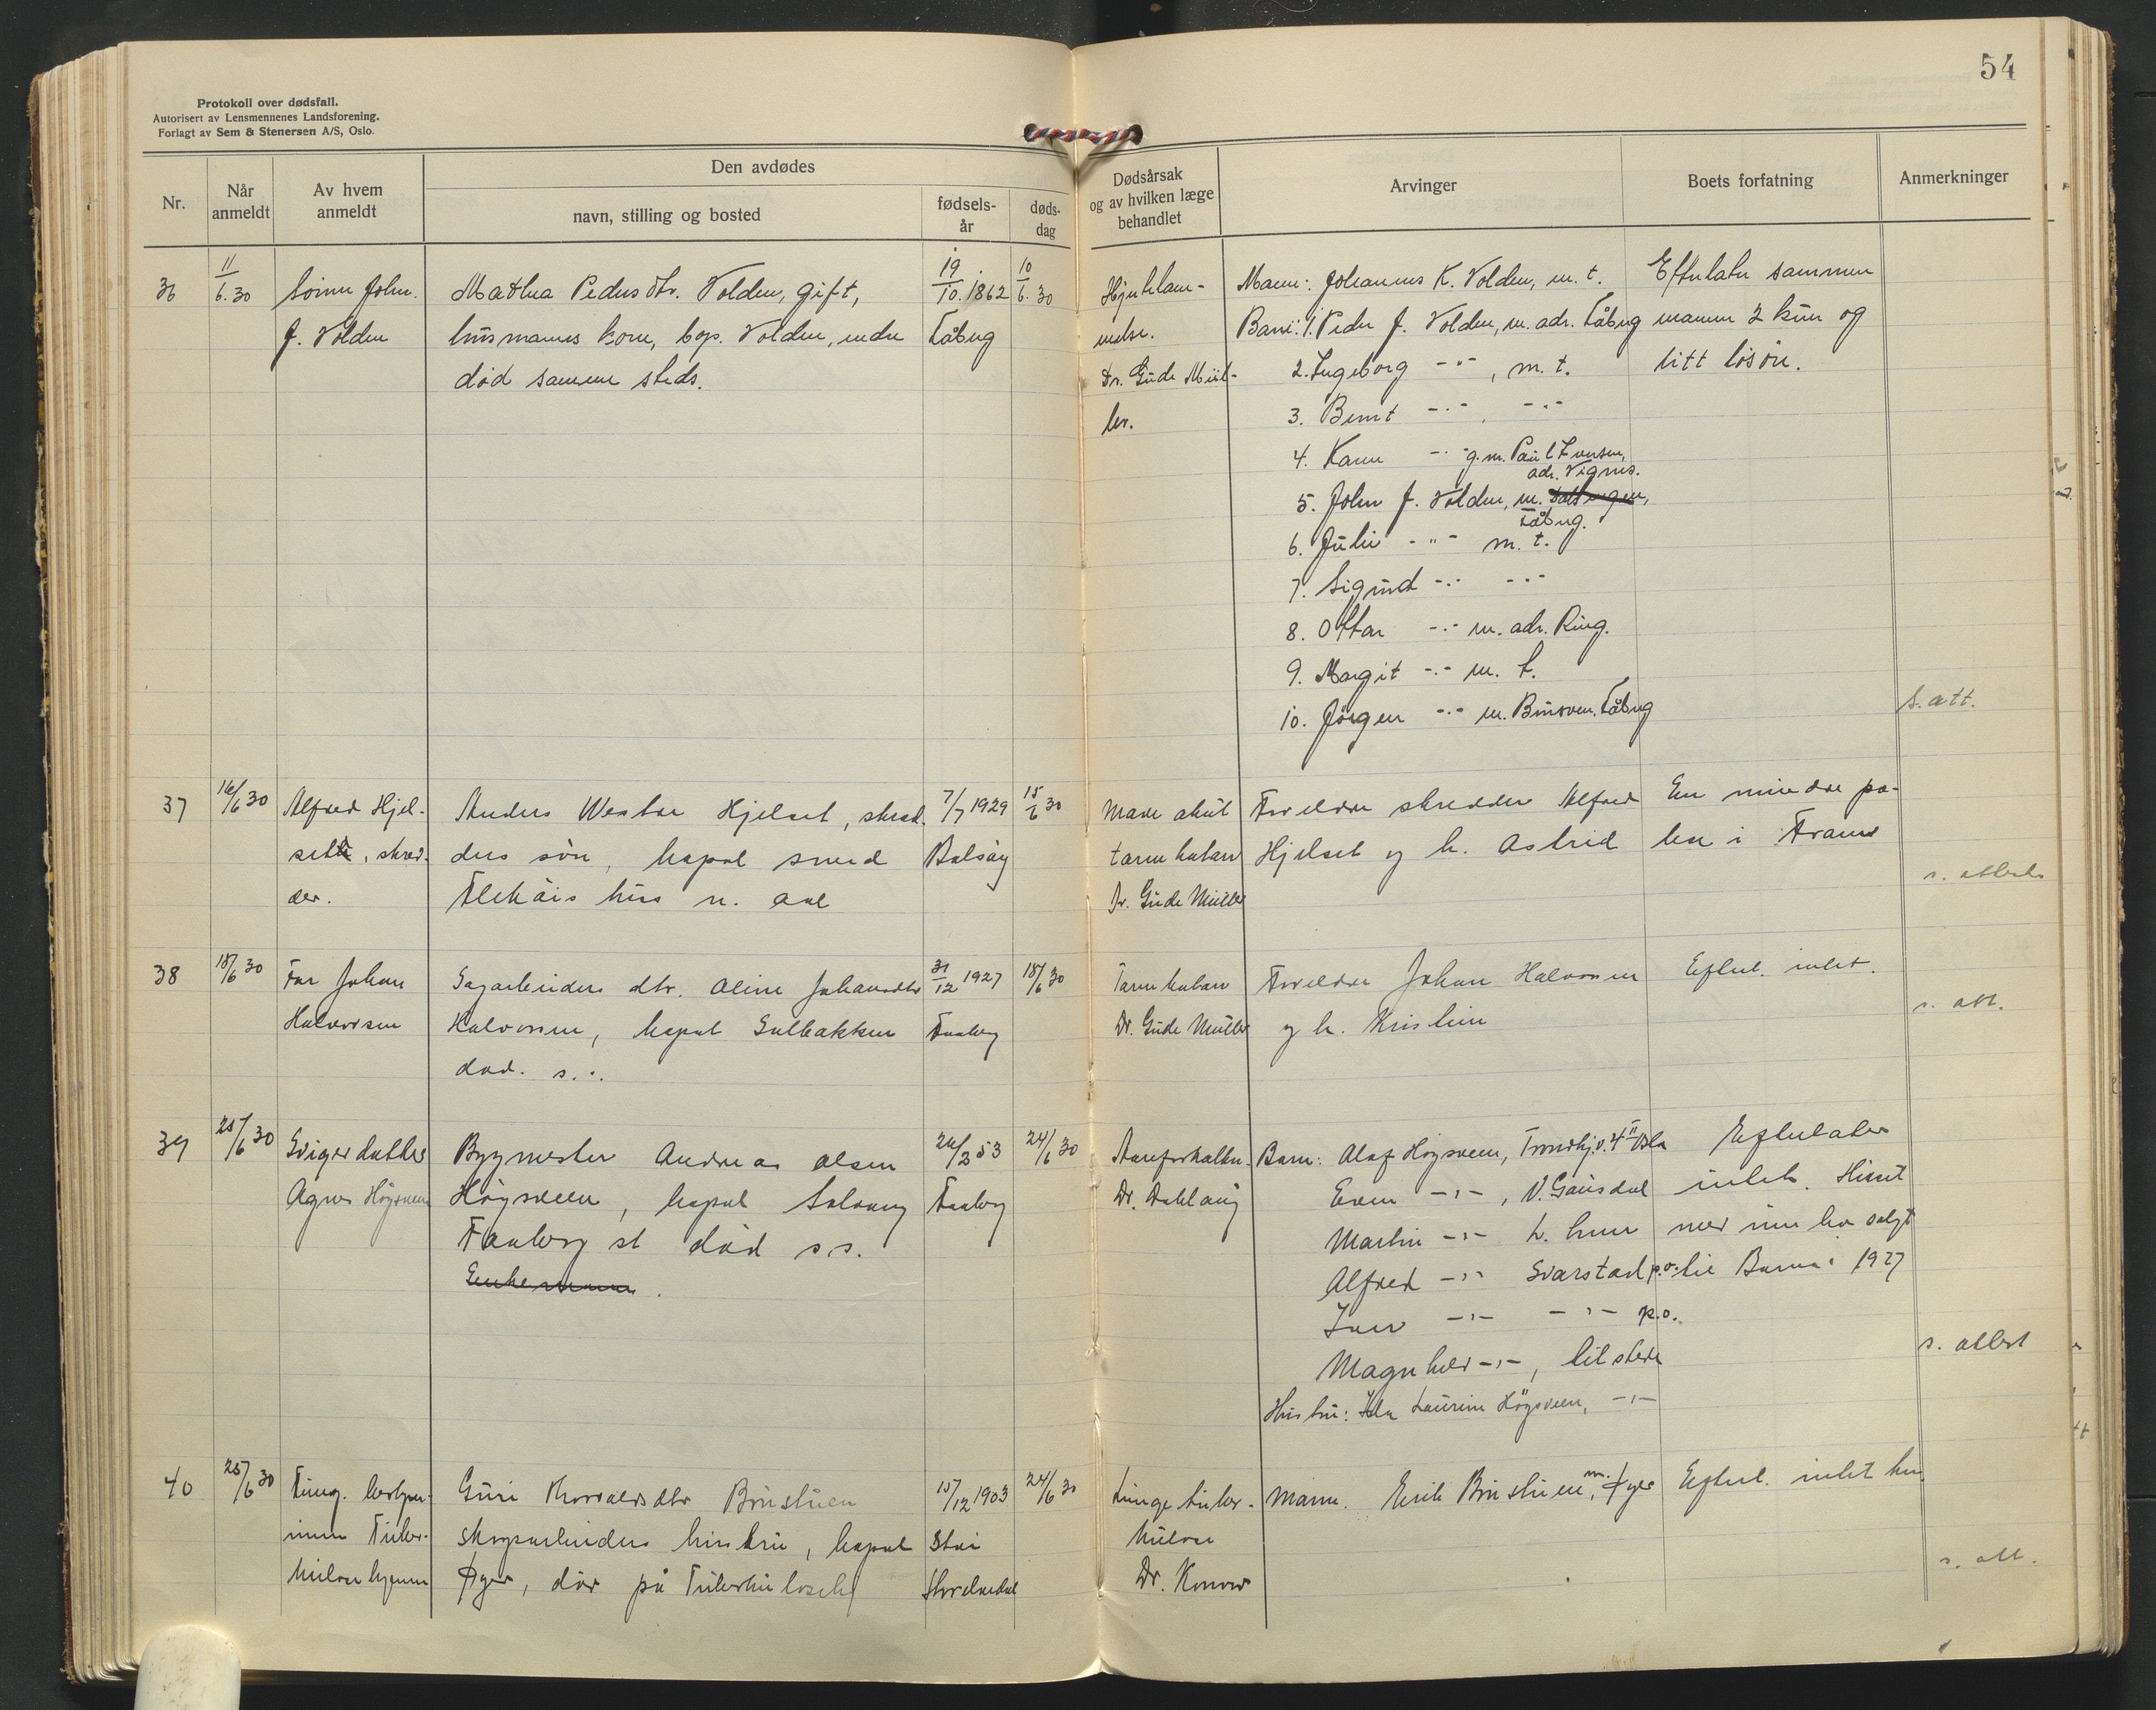 54
Protokoll over dødsfall.
Autorisert av Lensmennenes Landsforening.
Forlagt av Sem & Stenersen A/S, Oslo.
Nr.
Når anmeldt
Av hvem anmeldt
Den avdødes
navn, stilling og bosted
fødsels-år
døds-dag
Dødsårsak og av hvilken læge behandlet
Arvinger
Boets forfatning
Anmerkninger
36
11/6.30
Sønn John.
J. Volden
Mathea Pedersdtr. Volden, gift,
husmanns kone, bop. Volden, nedre
død samme steds.
19/10.1862
Fåbrg
10/6.30
Hjertelam-
melse.
Dr. Gude Mül-
ler.
Mann: Johannes K. Volden, m. t.
Barn: 1. Peder J. Volden, m. adr. Fåbrg
2. Ingeborg -"- , m. t.
3. Bernt -"- , -"-
4. Karen -"- g.m. Paul Iversen,
adr. Vignes.
5. John J. Volden, m.
Fåbrg.
6. Julie -"- m. t.
7. Sigurd -"- -"-
8. Ottar -"- m. adr. Ring.
9. Margit -"- m. t.
10. Jørgen -"- m. Fåbrg
Efterlater sammen
mannen 2 kuer og
litt løsøre.
s. att.
37
16/6 30
Alfred Hjel-
seth, skred-
der.
Anders Hjelset, skred-
ders søn, bopæl smed
hus n. aal
7/7 1929
15/6 30
Mave akut
tarmkatarr
Dr. Gude Müller
Foreldre skredder Alfred
Hjelset og h. Astrid
En mindre po-
s. attest
38
18/6 30
Far Johan
Halvorsen
Sagarbeiders dtr. Aline Johansdtr
Halvorsen, bopæl Sulbakken
død. s.s.
31/12 1927
Faaberg
18/6 30
Tarmkatarr
Dr. Gude Müller
Foreldre Johan Halvorsen
og h. Kristine
Efterl. intet.
s. att.
39
25/6 30
Svigerdatter
Agnes Høgsveen
Bygmester Andreas Olsen
Høgsveen, bopæl Solvang
Faaberg st død s.s.
Enkemann.
26/2 53
Faaberg
24/6 30
Aareforkalkn.
Dr. Dahlaug
Barn: Olaf Høgsveen, Trondhj.v. 4 II Oslo
Even -"-, V. Gausdal
Martin -"- L. hmr
Alfred -"- Svarstad p.o.
Iver -"- -"- p.o.
Magnhild -"-, tilstede
Hustru: Laurine Høgsveen, -"-
Efterlater
intet. Huset
mer inn bo solgt
til Barna i 1927
s. attest
40
25/6 30
Tuber-
kulosehjemm
Guri Thorvaldsdtr Brustuen
skogsarbeiders hustru, bopæl
Øyer, død på Tuberkuloseh
15/12 1903
Stai
Storelvedal
24/6 30
Lungetuber-
kulose
Dr. Konow
Mann. Erik Brustuen, m. Øyer
Efterl. intet
s. att.